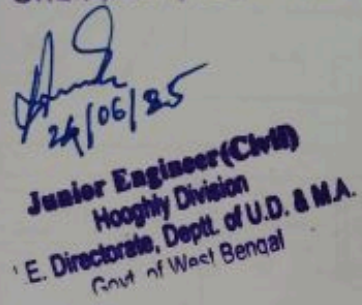 24/06/25
Junior Engineer (Civil)
Hooghly Division
E. Directorate, Deptt. of U.D. & M.A.
Govt. of West Bengal